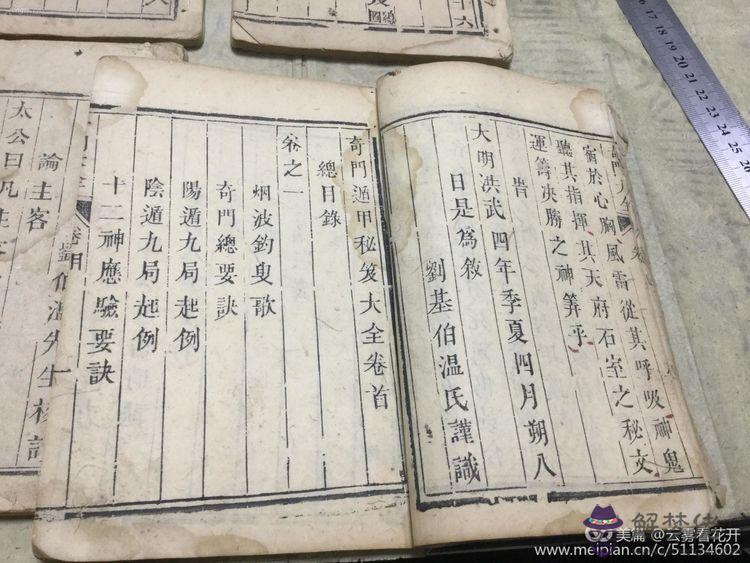 宿於心胸風雷從其呼吸神鬼
聽其指揮其天府石室之秘文
運籌决勝之神筭乎
旹
大明洪武四年季夏四月朔八
日是為敘
劉基伯温氏謹識
奇門遁甲秘笈大全卷首
總目錄
卷之一
烟波釣叟歌
奇門總要訣
陽遁九局起例
陰遁九局起例
十二神應驗要訣
論主客
太公曰凡主客
16 17 18 19 20 21 22 23 24 25 26
美篇 @云雾看花开
www.meipian.cn/c/51134602